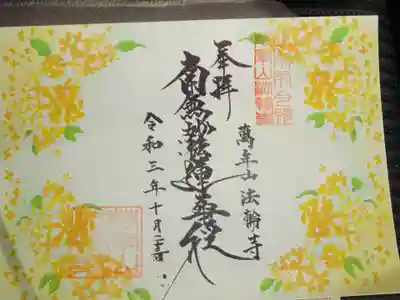 奉拝
萬年山 法輪寺
南無妙法蓮華経
令和三年十月二十三日